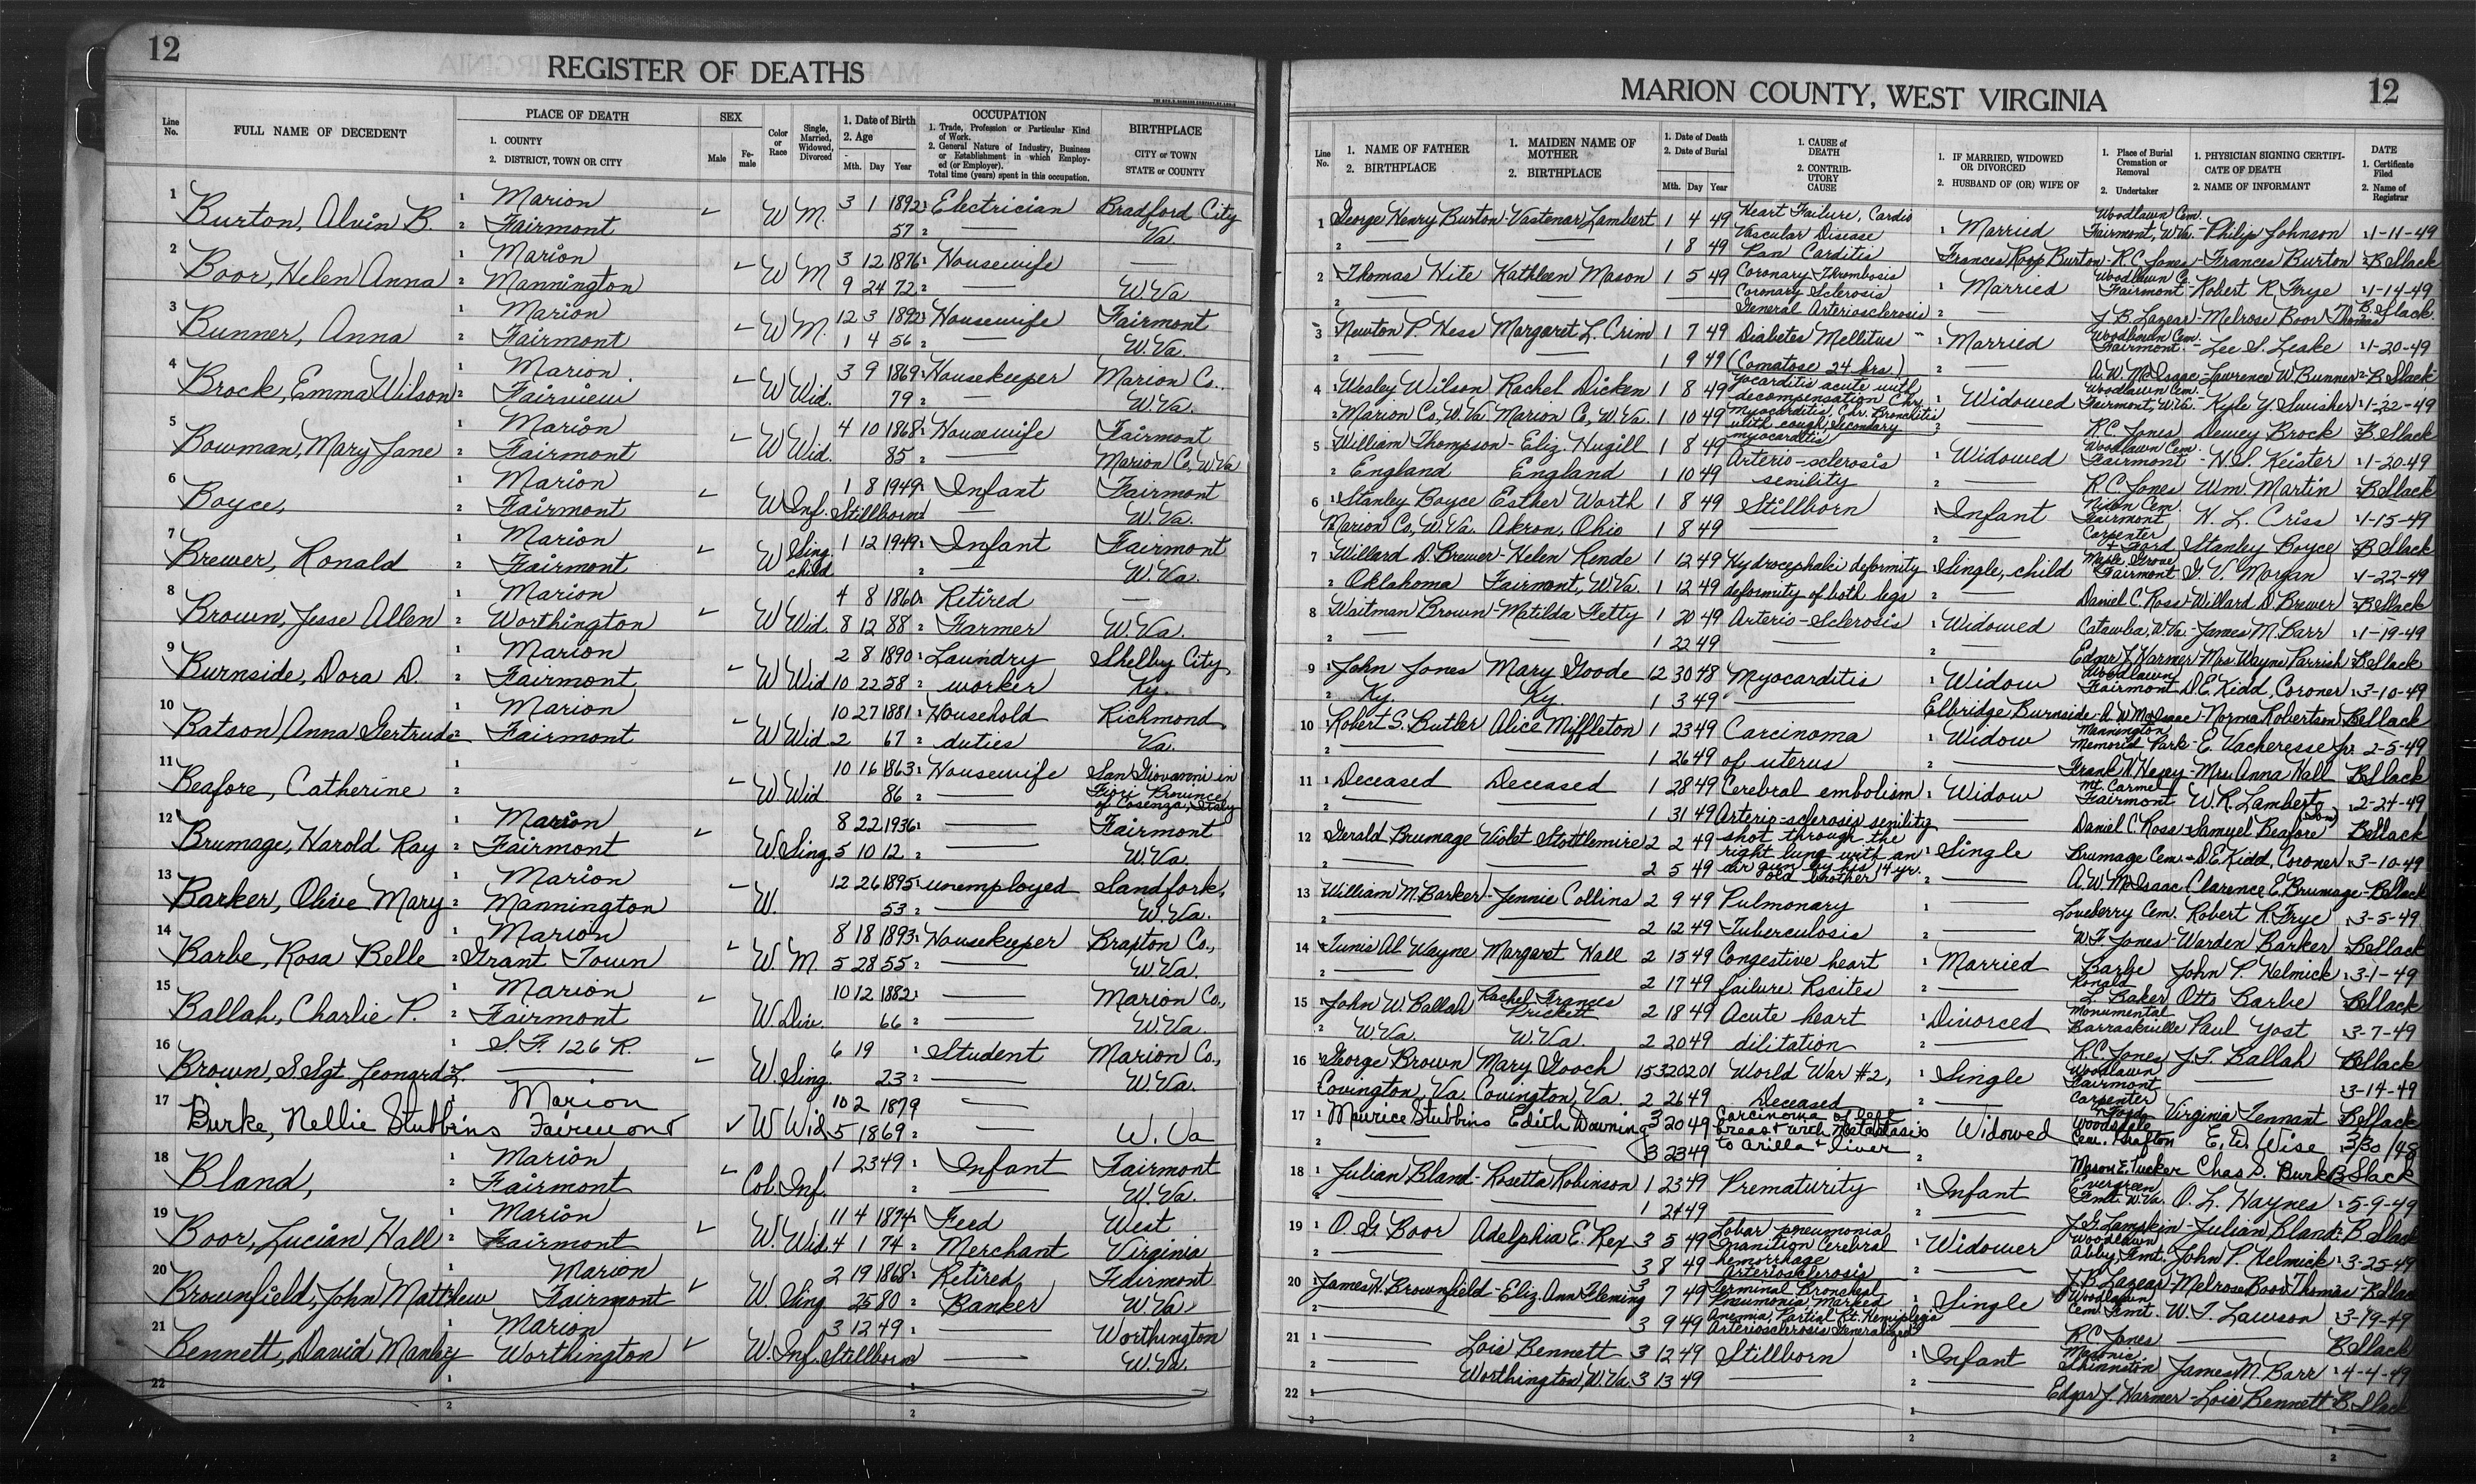 12
REGISTER OF DEATHS
Line No.
FULL NAME OF DECEDENT
PLACE OF DEATH
1. COUNTY
2. DISTRICT, TOWN OR CITY
SEX
Male
Female
Color or Race
Single, Married, Widowed, Divorced
1. Date of Birth
2. Age
Mth. Day Year
OCCUPATION
1. Trade, Profession or Particular Kind of Work.
2. General Nature of Industry, Business or Establishment in which Employed (or Employer).
Total time (years) spent in this occupation.
BIRTHPLACE
CITY or TOWN
STATE or COUNTY
1 Burton, Alvin B. 1 Marion ✓ W M. 3 1 1892 1 Electrician Bradford City
2 Fairmont 57 2 — Va.
2 Boor, Helen Anna 1 Marion ✓ W M 3 12 1876 1 Housewife —
2 Mannington 9 24 72 2 — W.Va.
3 Bunner, Anna 1 Marion ✓ W M. 12 3 1892 1 Housewife Fairmont
2 Fairmont 1 4 56 2 — W.Va.
4 Brock, Emma Wilson 1 Marion ✓ W Wid. 3 9 1869 1 Housekeeper Marion Co.,
2 Fairview 79 2 — W.Va.
5 Bowman, Mary Jane 1 Marion ✓ W Wid. 4 10 1868 1 Housewife Fairmont
2 Fairmont 85 2 — Marion Co, W.Va
6 Boyce, 1 Marion ✓ W Inf. 1 8 1949 1 Infant Fairmont
2 Fairmont Stillborn 2 — W.Va.
7 Brewer, Ronald 1 Marion ✓ W Sing. child 1 12 1949 1 Infant Fairmont
2 Fairmont 2 — W.Va.
8 Brown, Jesse Allen 1 Marion ✓ W Wid. 4 8 1860 1 Retired —
2 Worthington 8 12 88 2 Farmer W.Va.
9 Burnside, Dora D. 1 Marion ✓ W Wid 2 8 1890 1 Laundry Shelby City
2 Fairmont 10 22 58 2 worker Ky.
10 Batson, Anna Gertrude 1 Marion ✓ W Wid 10 27 1881 1 Household Richmond
2 Fairmont 2 67 2 duties Va.
11 Beafore, Catherine 1 ✓ W. Wid 10 16 1863 1 Housewife San Giovanni in
2 86 2 — Fiori Province of Cosenza, Italy
12 Brumage, Harold Ray 1 Marion ✓ W Sing 8 22 1936 1 — Fairmont
2 Fairmont 5 10 12 2 — W.Va.
13 Barker, Olive Mary 1 Marion ✓ W. 12 26 1895 1 unemployed Sandfork,
2 Mannington 53 2 — W.Va.
14 Barbe, Rosa Belle 1 Marion ✓ W. M. 8 18 1893 1 Housekeeper Braxton Co.,
2 Grant Town 5 28 55 2 — W.Va.
15 Ballah, Charlie P. 1 Marion ✓ W. Div. 10 12 1882 1 — Marion Co.,
2 Fairmont 66 2 — W.Va.
16 Brown, S. Sgt. Leonard L. 1 S.F. 126 R. ✓ W. Sing. 6 19 1 Student Marion Co.,
2 — 23 2 — W.Va.
17 Burke, Nellie Stubbins Marion ✓ W Wid 10 2 1879 —
Fairmont 5 18 69 2 — W. Va
18 Bland, 1 Marion ✓ Col. Inf. 1 23 49 1 Infant Fairmont
2 Fairmont 2 — W.Va.
19 Boor, Lucian Hall 1 Marion ✓ W. Wid 11 4 1874 1 Feed West
2 Fairmont 4 1 74 2 Merchant Virginia
20 Brownfield, John Matthew 1 Marion ✓ W. Sing 2 19 1868 1 Retired Fairmont
Fairmont 25 80 2 Banker W.Va
21 Bennett, David Manley 1 Marion ✓ W. Inf. 3 12 49 1 — Worthington
Worthington Stillborn — W.Va.
22 1
2
MARION COUNTY, WEST VIRGINIA
12
Line No.
1. NAME OF FATHER
2. BIRTHPLACE
1. MAIDEN NAME OF MOTHER
2. BIRTHPLACE
1. Date of Death
2. Date of Burial
Mth. Day Year
1. CAUSE OF DEATH
2. CONTRIBUTORY CAUSE
1. IF MARRIED, WIDOWED OR DIVORCED
2. HUSBAND OF (OR) WIFE OF
1. Place of Burial Cremation or Removal
2. Undertaker
1. PHYSICIAN SIGNING CERTIFICATE OF DEATH
2. NAME OF INFORMANT
DATE
1. Certificate Filed
2. Name of Registrar
1 George Henry Burton - Vastenar Lambert 1 4 49 Heart Failure, Cardio Vascular Disease 1 Married Woodlawn Cem. Fairmont, W.Va. - Philip Johnson 1-11-49
2 — — 1 8 49 Pan Carditis Frances Roop Burton - R.C. Jones - Frances Burton B Slack
2 Thomas Hite Kathleen Mason 1 5 49 Coronary Thrombosis Coronary Sclerosis 1 Married Woodlawn C. Fairmont - Robert R. Frye 1-14-49
2 — — General Arteriosclerosis 2 — J. B. Lazear - Melrose Boor Thomas B. Slack.
3 Newton P. Hess Margaret L. Crim 1 7 49 Diabetes Mellitus 1 Married Woodlawn Cem. Fairmont - Lee S. Leake 1-20-49
2 — — 1 9 49 (Comatose 24 hrs.) 2 — A. W. McIsaac - Lawrence W. Bunner B Slack
4 Wesley Wilson Rachel Dicken 1 8 49 Myocarditis acute with decompensation Chr. 1 Widowed Woodlawn Cem. Fairmont, W.Va. - Kyle Y. Swisher 1-22-49
2 Marion Co, W.Va. Marion Co, W.Va. 1 10 49 myocarditis, Chr. Bronchitis with cough, secondary 2 — R.C. Jones Dewey Brock B Slack
5 William Thompson - Eliz. Hugill 1 8 49 myocarditis Arterio-sclerosis 1 Widowed Woodlawn Cem. Fairmont - H. S. Keister 1-20-49
2 England England 1 10 49 senility 2 — R.C. Jones Wm. Martin B Slack
6 Stanley Boyce Esther Worth 1 8 49 Stillborn 1 Infant Nixon Cem. Fairmont H. L. Criss 1-15-49
Marion Co, W.Va. Akron, Ohio 1 8 49 — 2 — Carpenter & Ford Stanley Boyce B Slack
7 Willard D. Brewer - Helen Kende 1 12 49 Hydrocephalic deformity 1 Single, child Maple Grove Fairmont G. V. Morgan 1-22-49
2 Oklahoma Fairmont, W.Va. 1 12 49 deformity of both legs 2 — Daniel C. Ross Willard D. Brewer B Slack
8 Waitman Brown - Matilda Fetty 1 20 49 Arterio-sclerosis 1 Widowed Catawba, W.Va. - James M. Barr 1-19-49
2 — 1 22 49 — 2 — Edgar J. Harmer - Mrs. Wayne Parrish B Slack
9 John Jones Mary Goode 12 30 48 Myocarditis 1 Widow Woodlawn Fairmont D. E. Kidd, Coroner 3-10-49
2 Ky. Ky. 1 3 49 — Elbridge Burnside - A W McIsaac - Norma Robertson B Slack
10 Robert S. Butler Alice Miffleton 1 23 49 Carcinoma 1 Widow Mannington Memorial Park - E. Vacheresse Jr. 2-5-49
2 — — 1 26 49 of uterus 2 — Frank W. Hesey - Mrs. Anna Hall B Slack
11 Deceased Deceased 1 28 49 Cerebral embolism 1 Widow Mt. Carmel Fairmont W. R. Lambert 2-24-49
2 — — 1 31 49 Arterio-sclerosis, senility — Daniel C. Ross Samuel Beafore (son) B Slack
12 Gerald Brumage Violet Stottlemire 2 2 49 shot through the right lung with an 1 Single Brumage Cem. - D.E. Kidd, Coroner 3-10-49
— — 2 5 49 air gun by his 14 yr. old brother 2 — A. W. McIsaac Clarence E. Brumage - B Slack
13 William M. Barker - Jennie Collins 2 9 49 Pulmonary 1 — Loveberry Cem. Robert R. Frye 3-5-49
2 — — 2 12 49 Tuberculosis 2 — W. F. Jones - Warden Barker B Slack
14 Tunis Al Wayne Margaret Hall 2 15 49 Congestive heart 1 Married Barbe John P. Helmick 3-1-49
2 — — 2 17 49 failure. Rscites 2 — Ronald L. Baker Otts Barbe B Slack
15 John W. Ballah Rachel Frances Prickett 2 18 49 Acute heart Divorced Monumental Barrackville Paul Yost 3-7-49
2 W.Va. W.Va. 2 20 49 dilitation 2 — R.C. Jones J. T. Ballah B Slack
16 George Brown Mary Gooch 15320201 World War #2, 1 Single Woodlawn Fairmont — 3-14-49
Covington, Va. Covington, Va. 2 26 49 Deceased 2 — Carpenter & Ford Virginia Tennant B Slack
17 1 Maurice Stubbins Edith Downing 3 20 49 Carcinoma of left breast with metastasis Widowed Woodsdale Cem. Grafton E. D. Wise 3/30/48
2 — — 3 23 49 to axilla & liver 2 Mason E. Tucker Chas S. Burk B Slack
18 1 Julian Bland - Rosetta Robinson 1 23 49 Prematurity 1 Infant Evergreen Fmt. W.Va. O. L. Haynes 5-9-49
2 — — 1 24 49 — 2 — J. G. Lampkin - Julian Bland B. Slack
19 1 O. G. Boor Adelphia E. Rex 3 5 49 Lobar pneumonia Inanition Cerebral 1 Widower Woodlawn Abby Fmt. John P. Helmick 3-25-49
2 — — 3 8 49 hemorrhage Arteriosclerosis 2 — J. B. Lazear - Melrose Boor Thomas - B Slack
20 James H. Brownfield - Eliz. Ann Fleming 3 7 49 Terminal Broncheal Pneumonia Marked 1 Single Woodlawn Cem. Fmt. W. T. Lawson 3-19-49
— 3 9 49 anemia, Partial Rt. Hemiplegia Arteriosclerosis Generalized — R.C. Jones — B Slack
21 1 — Lois Bennett 3 12 49 Stillborn 1 Infant Masonic Shinnston James M. Barr 4-4-49
2 — Worthington, W.Va. 3 13 49 — 2 — Edgar J. Harmer - Lois Bennett B. Slack
22 1
2